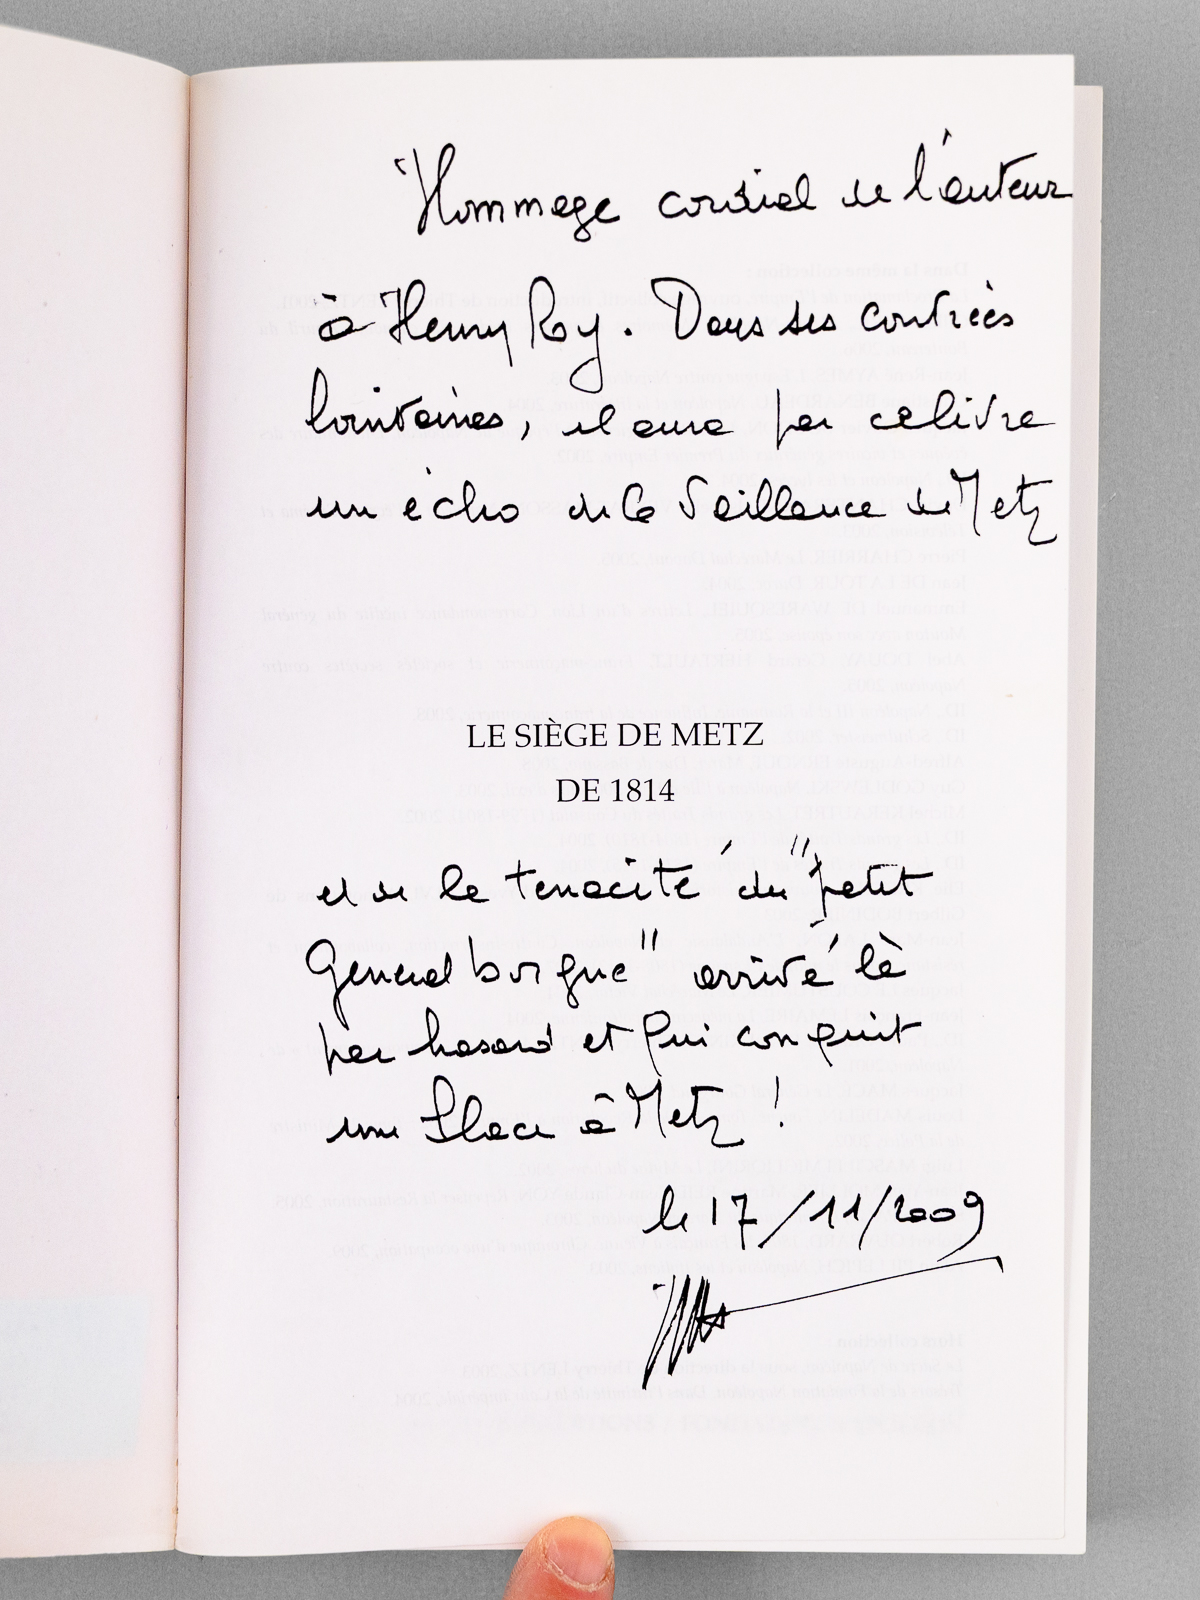 Hommage cordial de l'auteur
à Henry Roy. Dans ses contrées
lointaines, il aura par ce livre
un écho de la vaillance de Metz
LE SIÈGE DE METZ
DE 1814
et de la ténacité du "petit
Général borgne" arrivé là
par hasard et qui conquit
une place à Metz !
le 17/11/2009